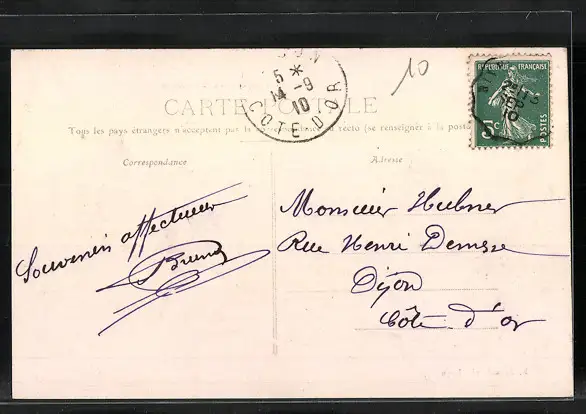 10
RÉPUBLIQUE FRANÇAISE
5c
POSTES
5 *
14 -9
10
COTE D'OR
CARTE POSTALE
Tous les pays étrangers n'acceptent pas la correspondance au recto (se renseigner à la poste
Correspondance
Adresse
Souvenir affectueux
Monsieur Hubner
Rue Henri
Dijon
Côte d'or